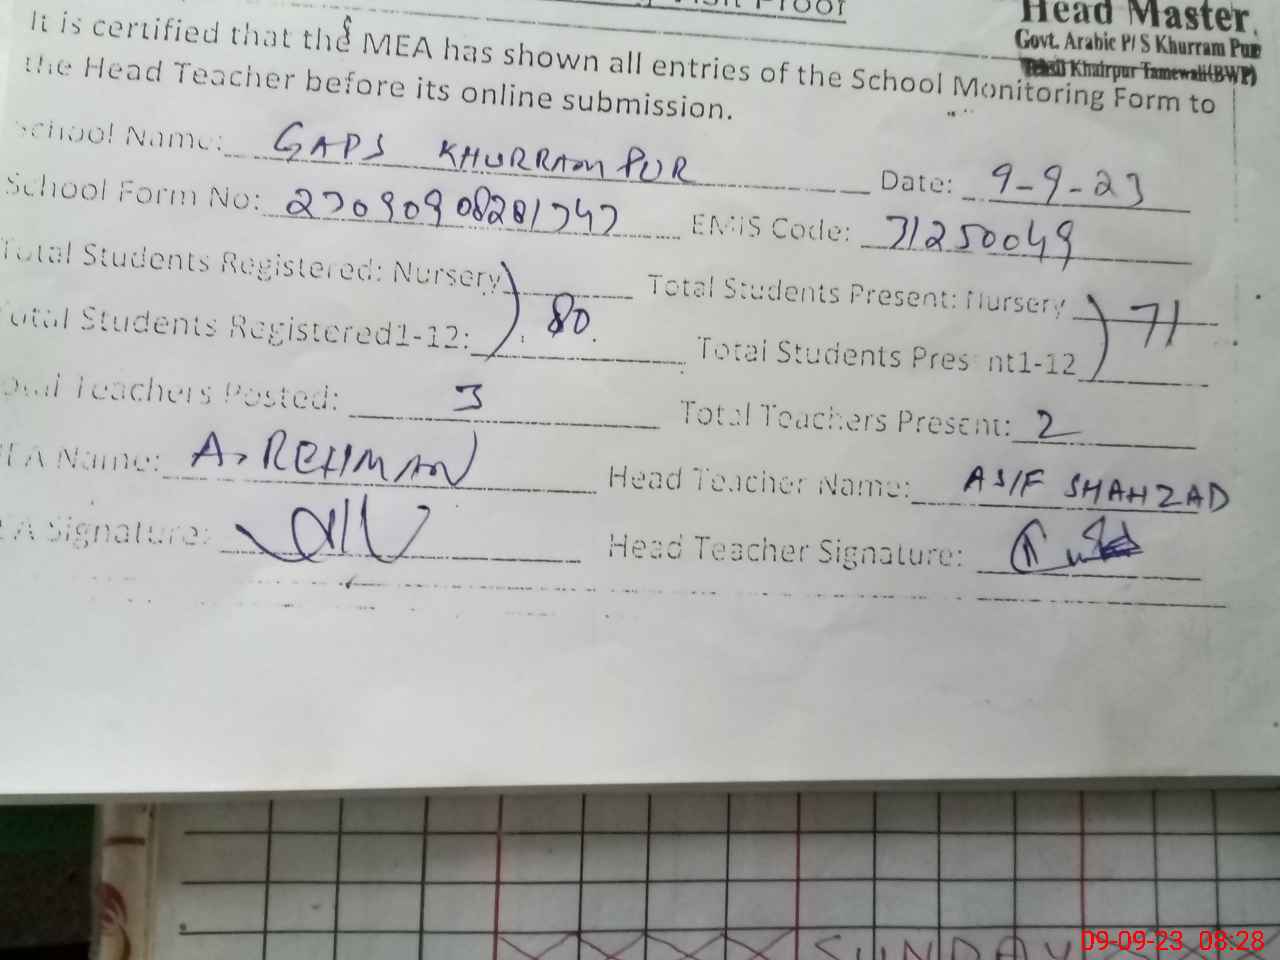 Visit Proof
Head Master,
Govt. Arabic P/S Khurram Pur
Tehsil Khairpur Tamewali(BWP)
It is certified that the MEA has shown all entries of the School Monitoring Form to
the Head Teacher before its online submission.
School Name: GAPS KHURRAM PUR Date: 9-9-23
School Form No: EMIS Code: 31250049
Total Students Registered: Nursery Total Students Present: Nursery
80 71
Total Students Registered1-12: Total Students Present1-12
Total Teachers Posted: 3 Total Teachers Present: 2
MEA Name: A. REHMAN Head Teacher Name: ASIF SHAHZAD
MEA Signature: Head Teacher Signature:
SUNDAY
09-09-23 08:28